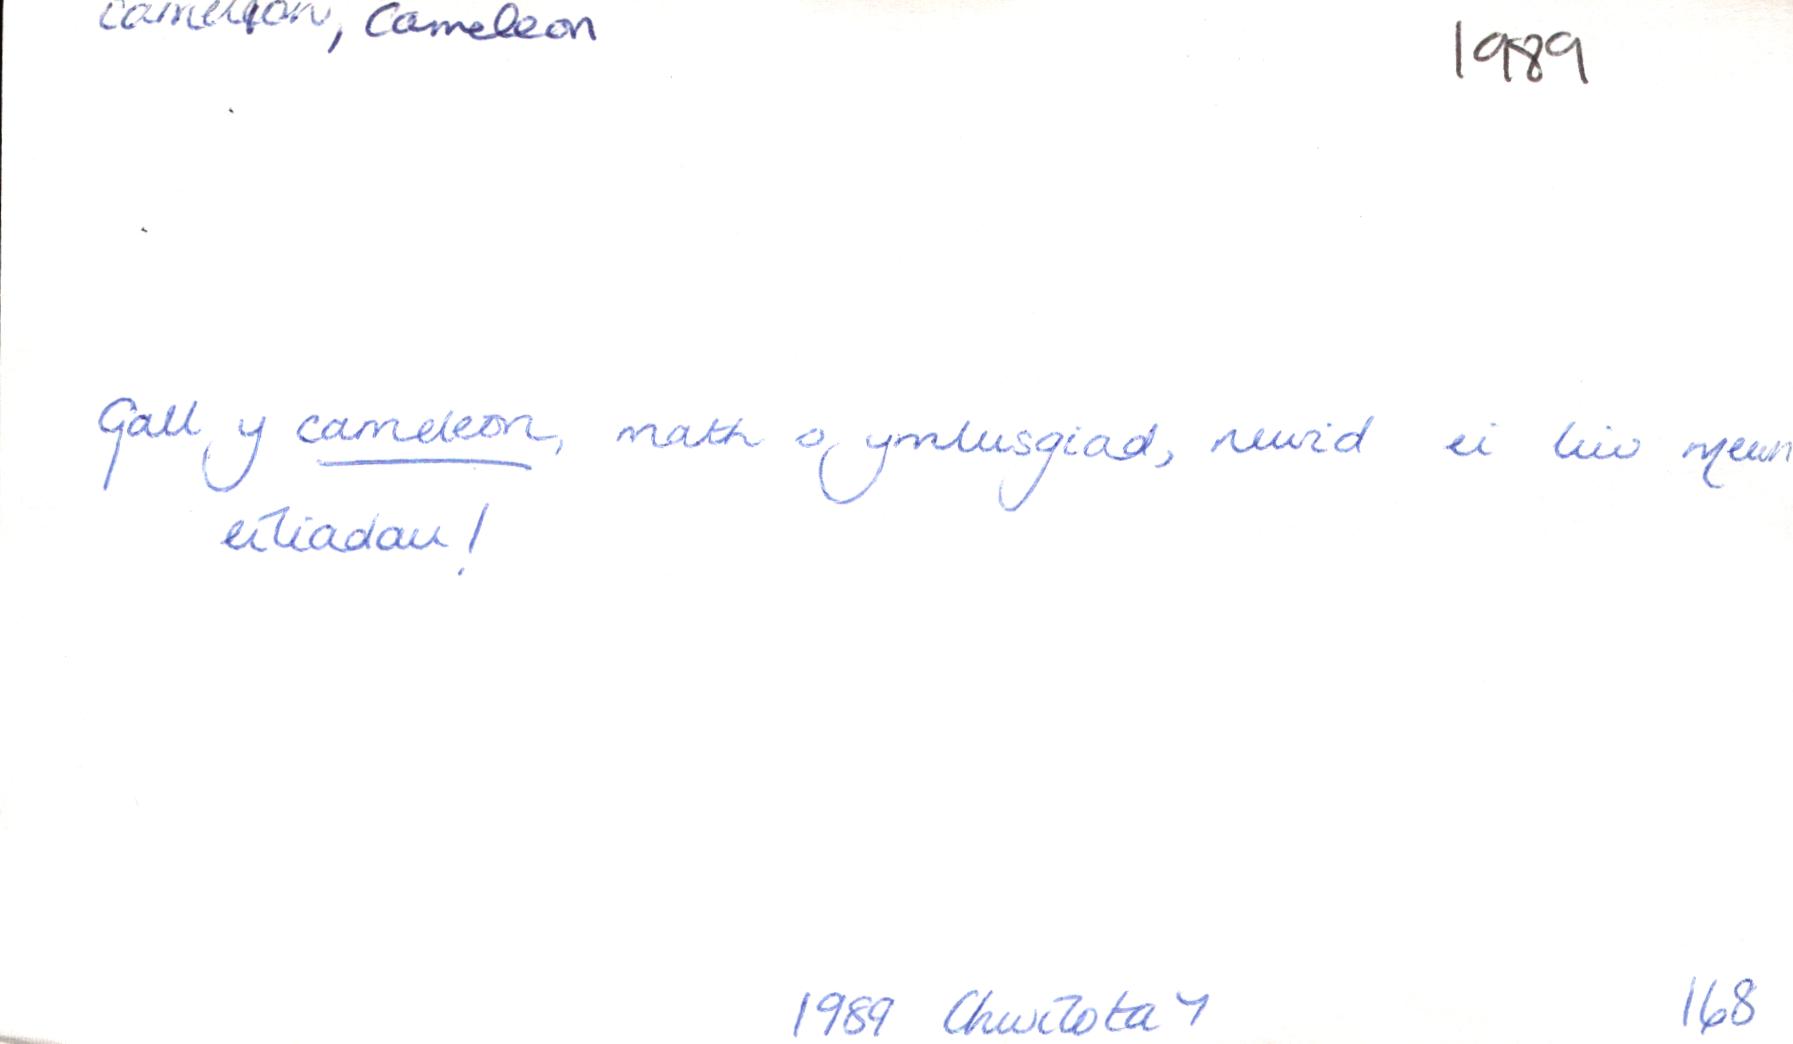 cameleon, Cameleon 1989
Gall y cameleon, math o ymlusgiad, newid ei liw mewn
eiliadau!
1989 Chwilota 4 168